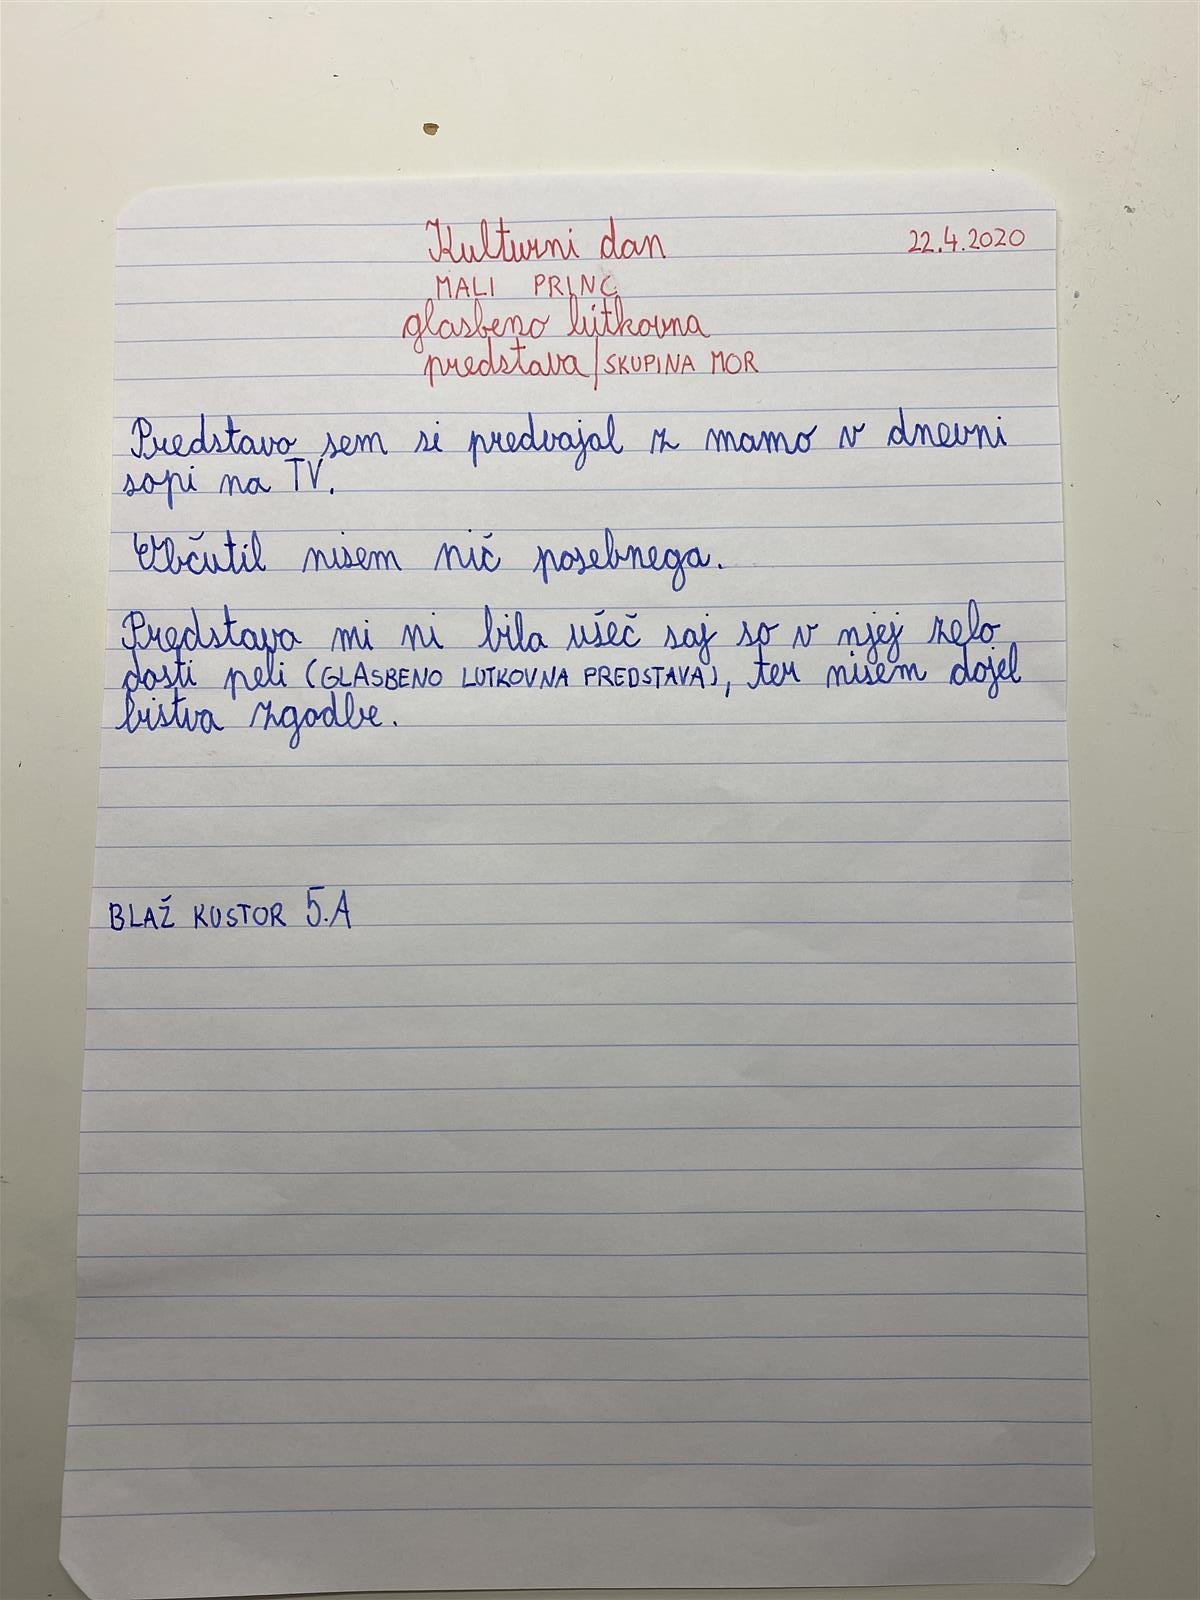 Kulturni dan 22.4.2020
MALI PRINC
glasbeno lutkovna
predstava/SKUPINA MOR
Predstavo sem si predvajal z mamo v dnevni
sopi na TV.
Občutil nisem nič posebnega.
Predstava mi ni bila ušeč saj so v njej zelo
dosti peli (GLASBENO LUTKOVNA PREDSTAVA), ter nisem dojel
bistva zgodbe.
BLAŽ KUSTOR 5.A